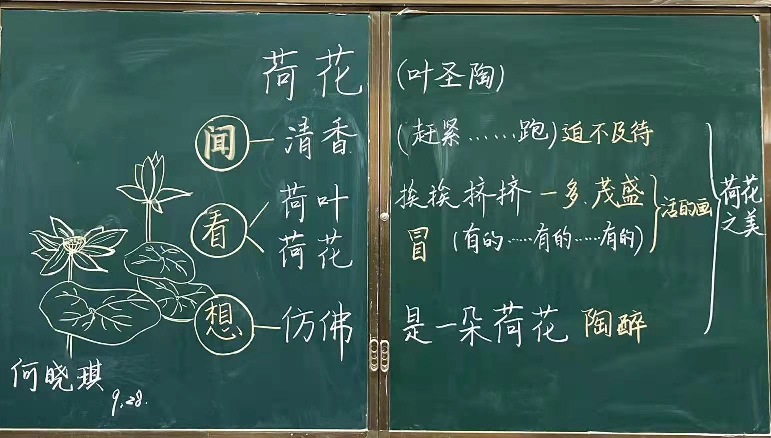 荷花 (叶圣陶)
闻 — 清香 (赶紧……跑) 迫不及待
看 荷叶 挨挨挤挤 — 多、茂盛
荷花 冒 (有的……有的……有的)
活的画
荷花之美
想 — 仿佛 是一朵荷花 陶醉
何晓琪
9.28.